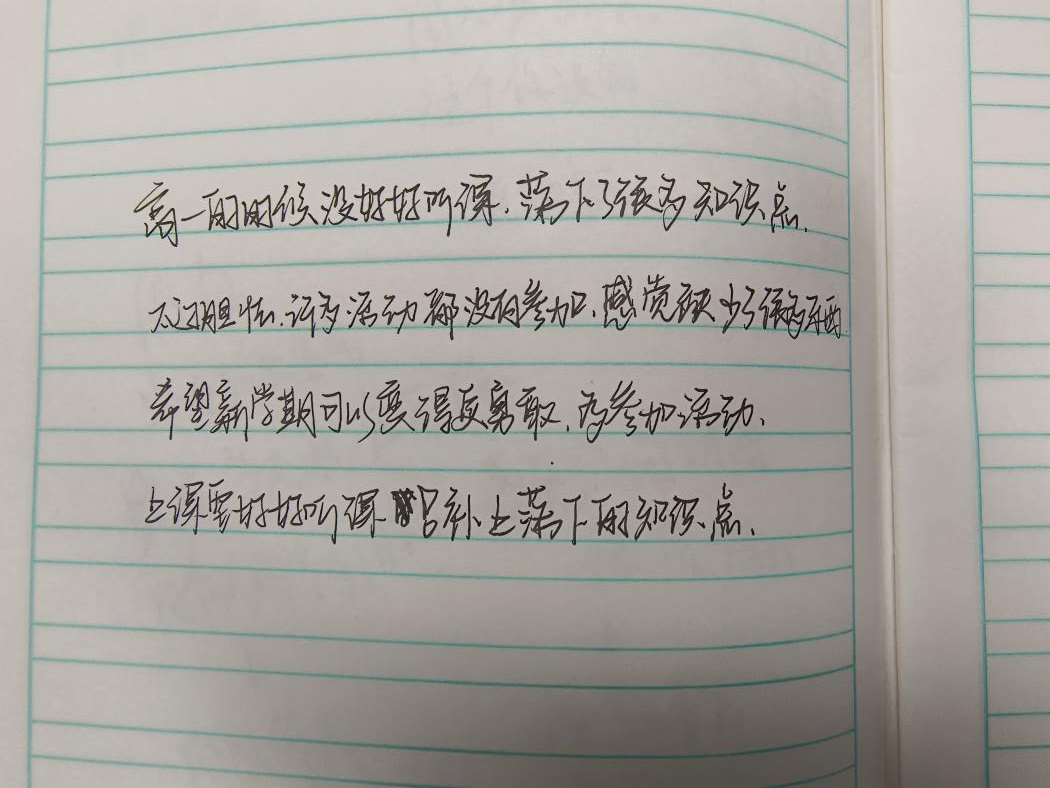 高一的时候没好好听课,落下了很多知识点.
太过胆怯.许多活动都没有参加,感觉缺少了很多东西
希望新学期可以变得更勇敢,多参加活动,
上课要好好听课 补上落下的知识点.